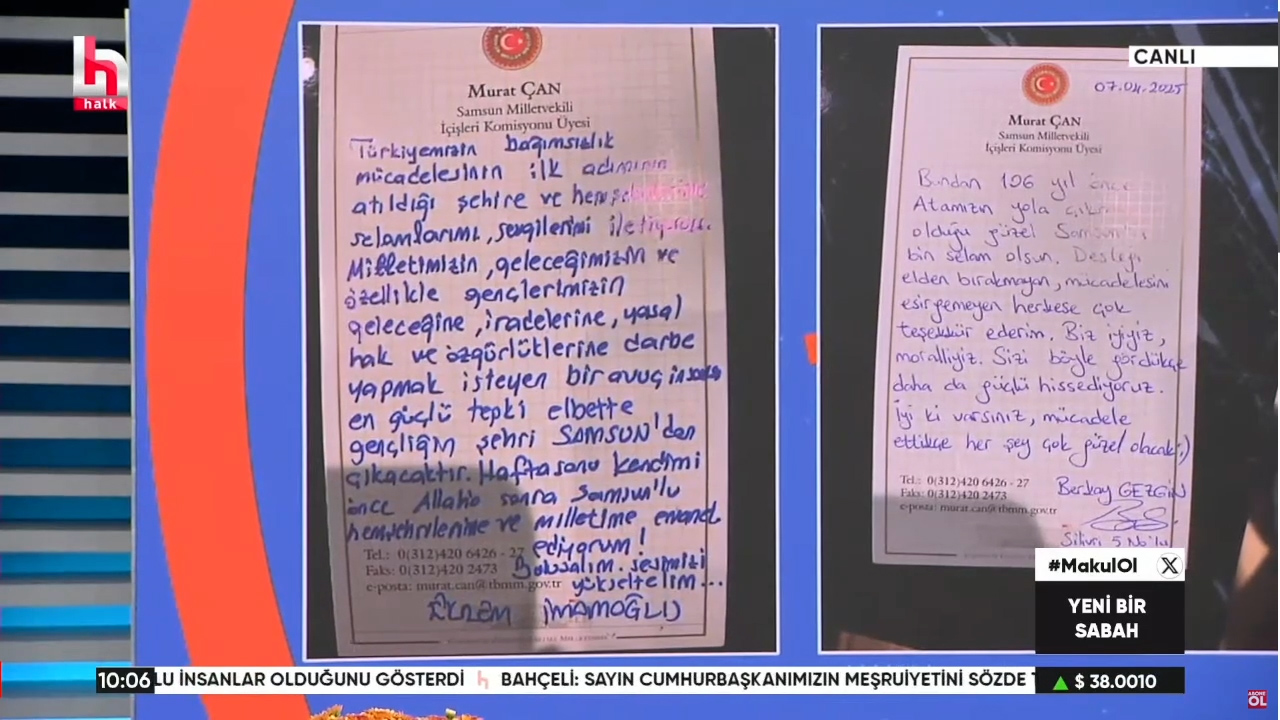 halk
Murat ÇAN
Samsun Milletvekili
İçişleri Komisyonu Üyesi
Türkiyemizin bağımsızlık
mücadelesinin ilk adımının
atıldığı şehire ve
selamlarımı, sevgilerimi iletiyorum.
Milletimizin, geleceğimizin ve
özellikle gençlerimizin
geleceğine, iradelerine, yasal
hak ve özgürlüklerine darbe
yapmak isteyen bir avuç
en güçlü tepki elbette
gençliğin şehri SAMSUN'dan
çıkacaktır. Haftasonu kendimi
önce Allah'a sonra Samsun'lu
hemşehrilerime ve milletime emanet
ediyorum!
Tel.: 0(312)420 6426 - 27
Faks: 0(312)420 2473
e-posta: murat.can@tbmm.gov.tr
Buluşalım. sesimizi
yükseltelim...
EKREM İMAMOĞLU
CANLI
07.04.2025
Murat ÇAN
Samsun Milletvekili
İçişleri Komisyonu Üyesi
Bundan 106 yıl önce
Atamızın yola çıkmış
olduğu güzel Samsun'a
bin selam olsun. Desteği
elden bırakmayan, mücadelesini
esirgemeyen herkese çok
teşekkür ederim. Biz iyiyiz,
moralliyiz. Sizi böyle gördükçe
daha da güçlü hissediyoruz.
İyi ki varsınız, mücadele
ettikçe her şey çok güzel olacak :)
Tel.: 0(312)420 6426 - 27
Faks: 0(312)420 2473
e-posta: murat.can@tbmm.gov.tr
Berkay GEZGİN
Silivri 5 No'lu
#MakulOl X
YENİ BİR
SABAH
10:06 LU İNSANLAR OLDUĞUNU GÖSTERDİ h BAHÇELİ: SAYIN CUMHURBAŞKANIMIZIN MEŞRUİYETİNİ SÖZDE
$ 38.0010
ABONE
OL